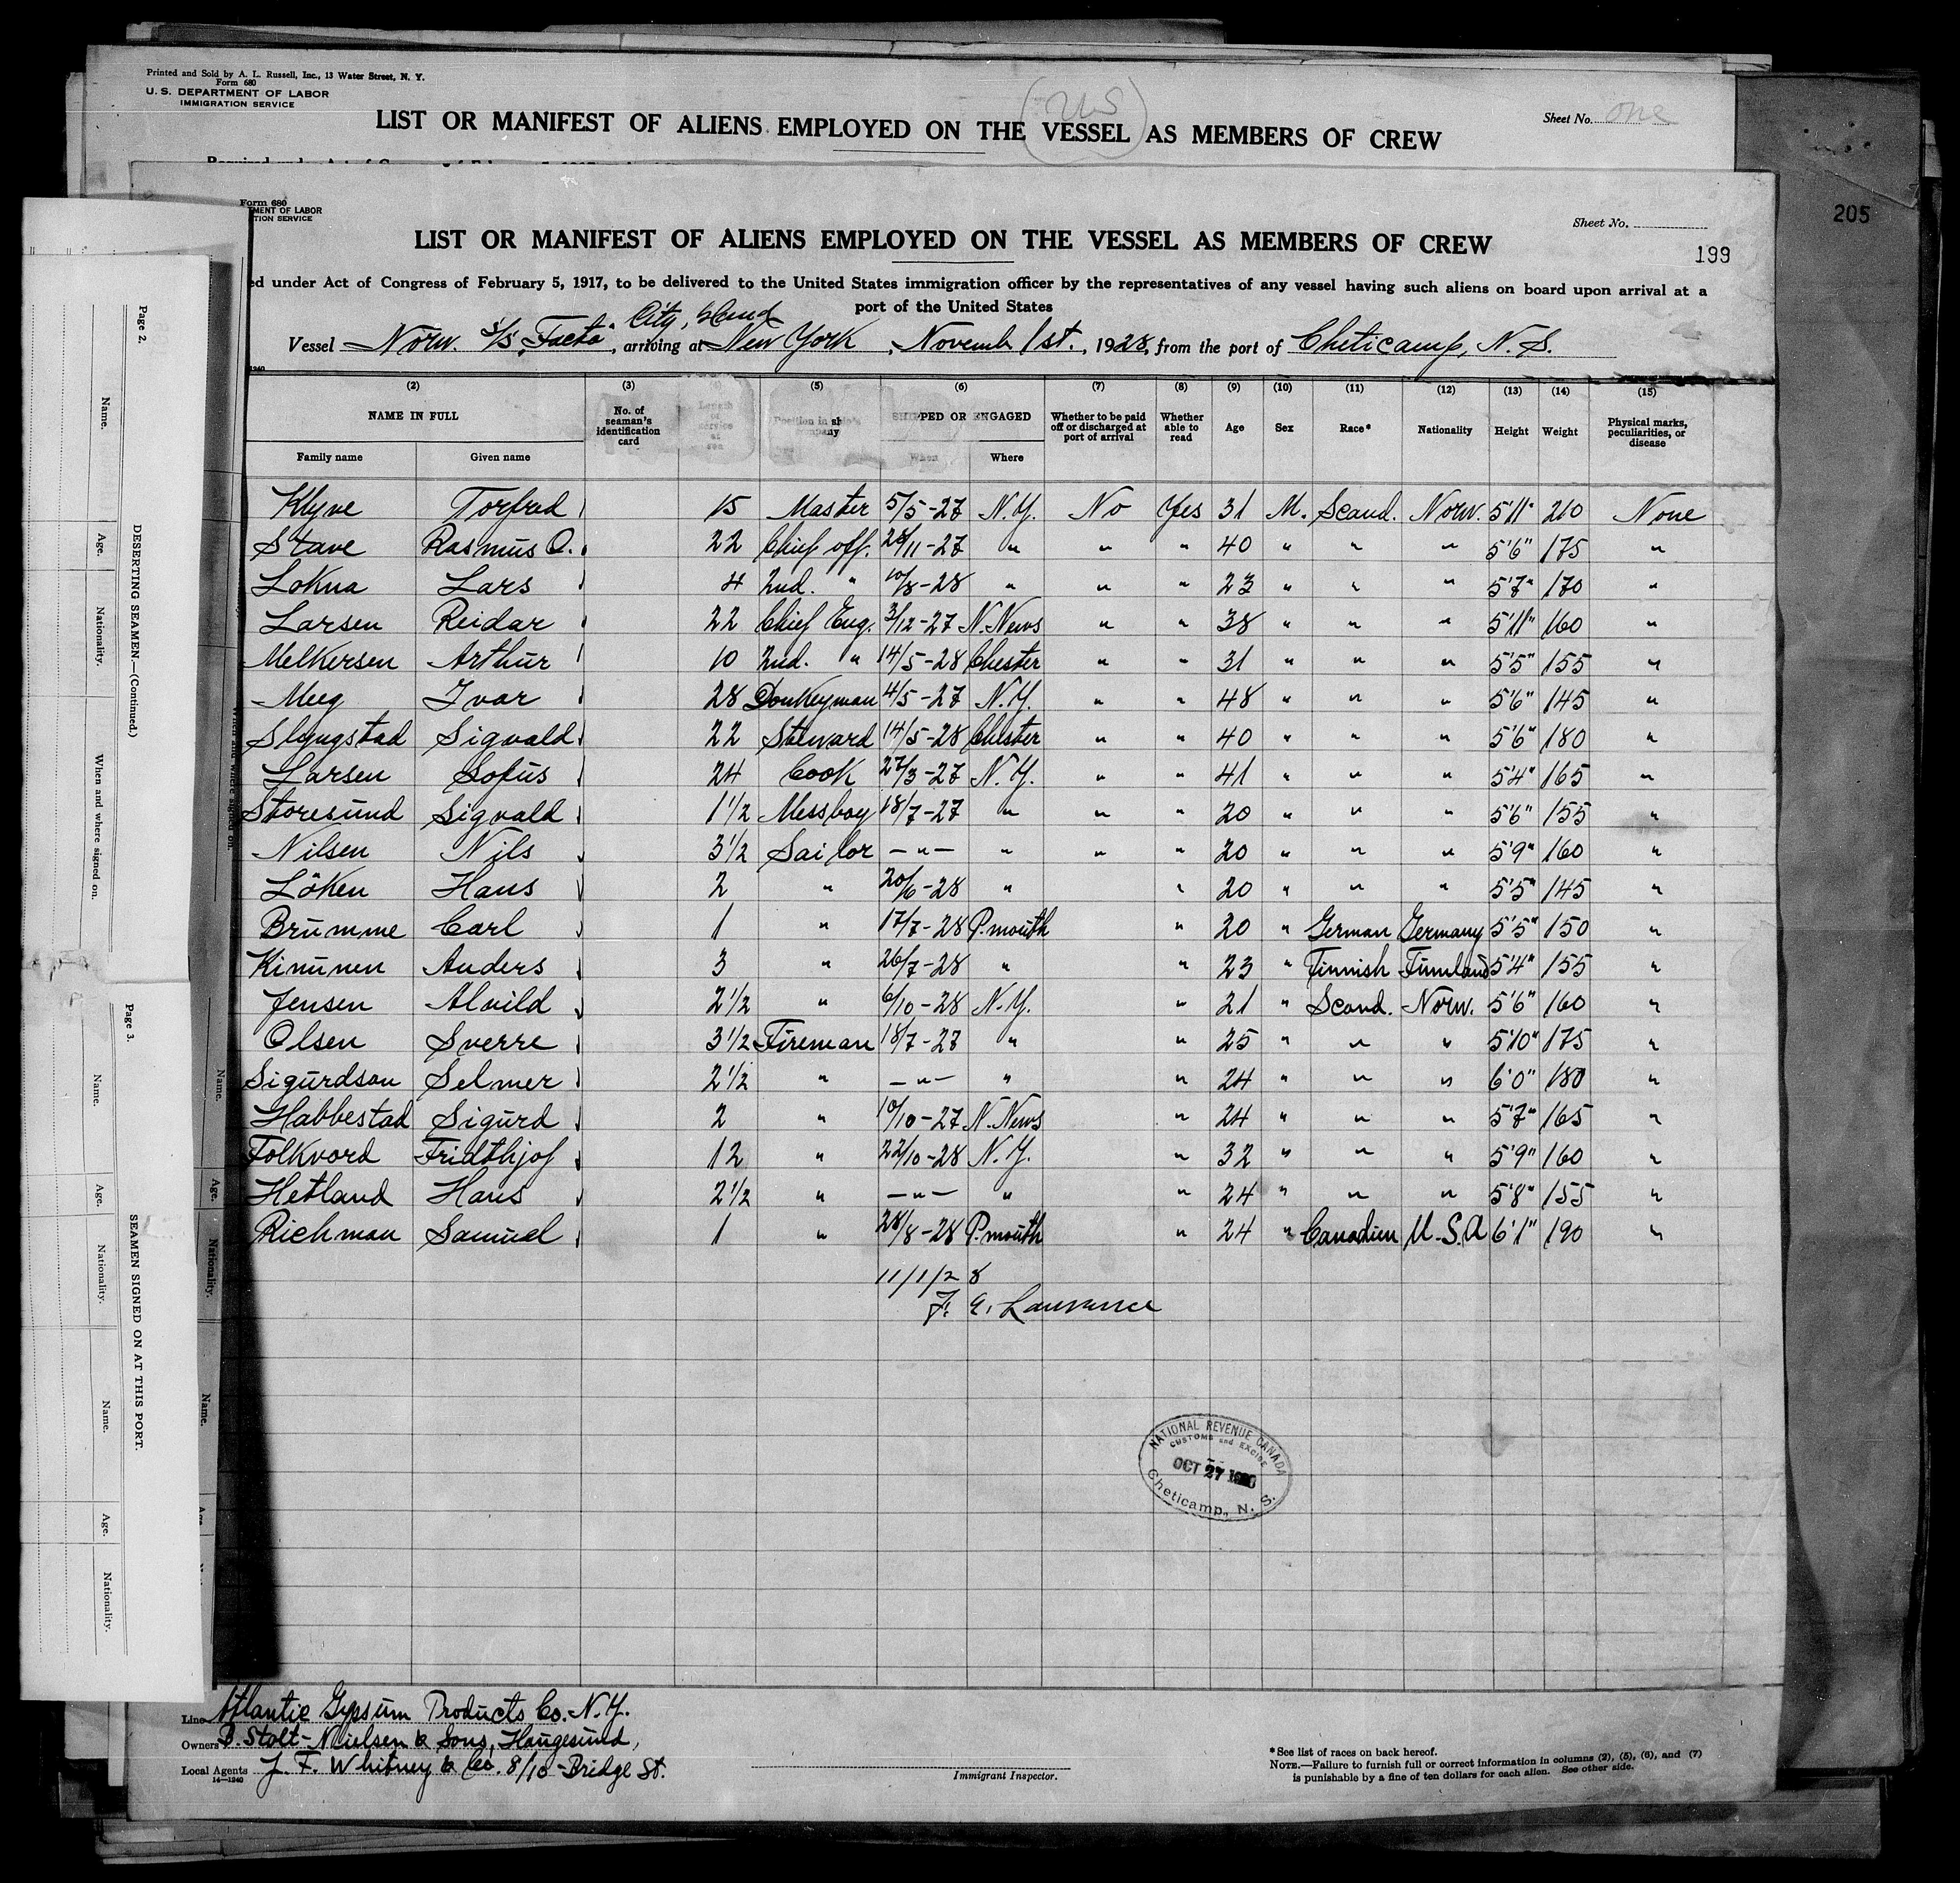 Printed and Sold by A. L. Russell, Inc., 13 Water Street, N. Y.
Form 680
U. S. DEPARTMENT OF LABOR
IMMIGRATION SERVICE
(US)
Sheet No. one
LIST OR MANIFEST OF ALIENS EMPLOYED ON THE VESSEL AS MEMBERS OF CREW
205
Form 680
MENT OF LABOR
TION SERVICE
Sheet No.
LIST OR MANIFEST OF ALIENS EMPLOYED ON THE VESSEL AS MEMBERS OF CREW
199
ed under Act of Congress of February 5, 1917, to be delivered to the United States immigration officer by the representatives of any vessel having such aliens on board upon arrival at a
port of the United States
City, Island
Vessel Norw. S/S "Facto", arriving at New York, Novemb 1st., 1928, from the port of Cheticamp, N. S.
(2) (3) (4) (5) (6) (7) (8) (9) (10) (11) (12) (13) (14) (15)
NAME IN FULL No. of seaman's identification card Length of service at sea Position in ship's company SHIPPED OR ENGAGED Whether to be paid off or discharged at port of arrival Whether able to read Age Sex Race* Nationality Height Weight Physical marks, peculiarities, or disease
Family name Given name When Where
Klyve Torfred 15 Master 5/5-27 N.Y. No Yes 31 M. Scand. Norw. 5'11" 210 None
Stave Rasmus O. 22 Chief off. 28/11-27 " " " 40 " " " 5'6" 175 "
Lokna Lars 4 2nd. " 10/8-28 " " " 23 " " " 5'7" 170 "
Larsen Reidar 22 Chief Eng. 3/12-27 N. News " " 38 " " " 5'11" 160 "
Melkersen Arthur 10 2nd. " 14/5-28 Chester " " 31 " " " 5'5" 155 "
Meeg Ivar 28 Donkeyman 4/5-27 N.Y. " " 48 " " " 5'6" 145 "
Slyngstad Sigvald 22 Steward 14/5-28 Chester " " 40 " " " 5'6" 180 "
Larsen Sofus 24 Cook 27/3-27 N.Y. " " 41 " " " 5'4" 165 "
Storesund Sigvald 1 1/2 Messboy 18/7-27 " " " 20 " " " 5'6" 155 "
Nilsen Nils 3 1/2 Sailor -"- " " " 20 " " " 5'9" 160 "
Löken Hans 2 " 20/6-28 " " 20 " " " 5'5" 145 "
Brumme Carl 1 " 17/7-28 P.mouth " 20 " German Germany 5'5" 150 "
Kinunen Anders 3 " 26/7-28 " " 23 " Finnish Finnland 5'4" 155 "
Jensen Alvild 2 1/2 " 6/10-28 N.Y. " 21 " Scand. Norw. 5'6" 160 "
Olsen Sverre 3 1/2 Fireman 18/7-27 " " 25 " " " 5'10" 175 "
Sigurdson Selmer 2 1/2 " -"- " " 24 " " " 6'0" 180 "
Habbestad Sigurd 2 " 10/10-27 N. News " 24 " " " 5'7" 165 "
Folkvord Fridthjof 12 " 22/10-28 N.Y. " 32 " " " 5'9" 160 "
Hetland Hans 2 1/2 " -"- " " 24 " " " 5'8" 155 "
Richman Samuel 1 " 28/8-28 P.mouth " 24 " Canadien U.S.A 6'1" 190 "
11/1/28
F. E. Lawrence
NATIONAL REVENUE CANADA
CUSTOMS and EXCISE
OCT 27
Cheticamp, N. S.
Line Atlantic Gypsum Products Co. N.Y.
Owners B. Stolt-Nielsen & Sons, Haugesund,
Local Agents J. F. Whitney & Co. 8/10 Bridge St.
14-1240
Immigrant Inspector.
*See list of races on back hereof.
NOTE.—Failure to furnish full or correct information in columns (2), (5), (6), and (7)
is punishable by a fine of ten dollars for each alien. See other side.
Page 2.
DESERTING SEAMEN—(Continued.)
Name. Age. Nationality. When and where signed on.
Page 3.
SEAMEN SIGNED ON AT THIS PORT.
Name. Age. Nationality. Name. Age. Nationality.
When and where signed on.
Name. Age. Nationality. Name.